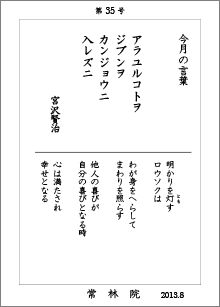 第35号
今月の言葉
アラユルコトヲ
ジブンヲ
カンジョウニ
入レズニ
宮沢賢治
明かりを灯す
とも
ロウソクは
わが身をへらして
まわりを照らす
他人の喜びが
自分の喜びとなる時
心は満たされ
幸せとなる
常林院
2013.8